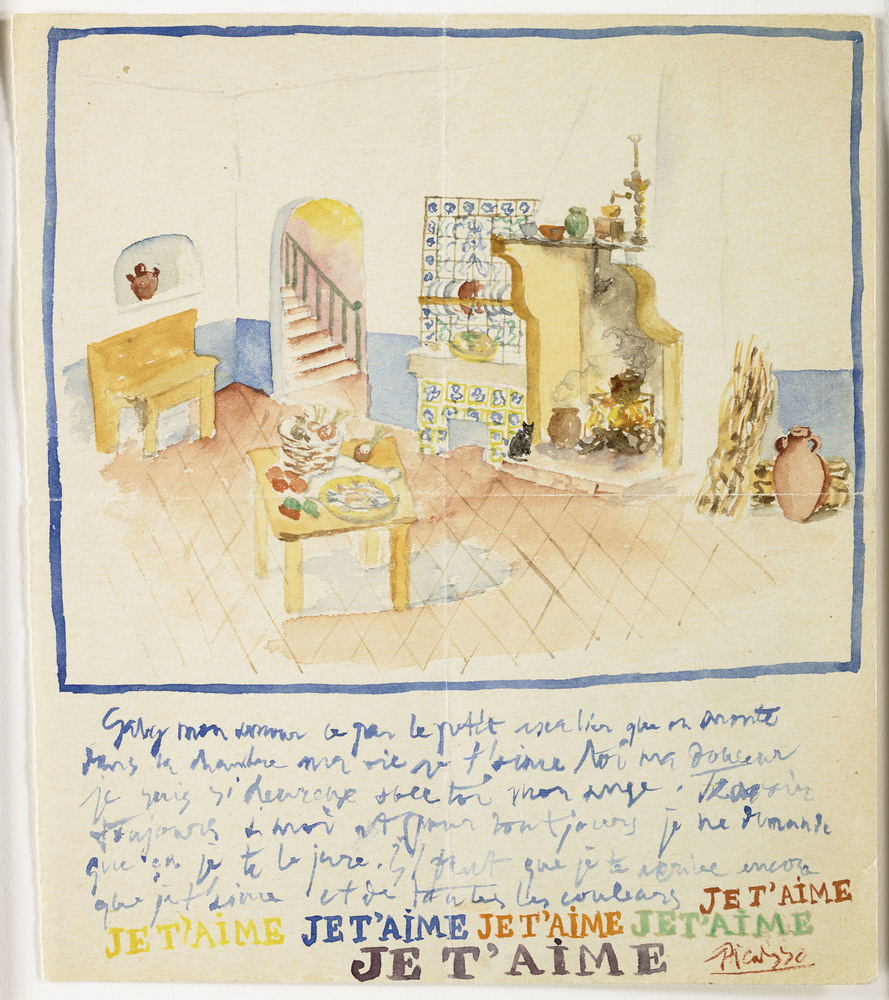 Gaby mon amour ce par le petit escalier que on monte
dans ta chambre ma vie je t'aime toi ma douceur
je suis si heureux avec toi mon ange.
toujours a moi et pour toutjours je ne demande
que ça je te le jure. Il faut que je te ecrive encore
que je t'aime et de toutes les couleurs
JE T'AIME
JE T'AIME JE T'AIME JE T'AIME JE T'AIME
JE T'AIME
Picasso